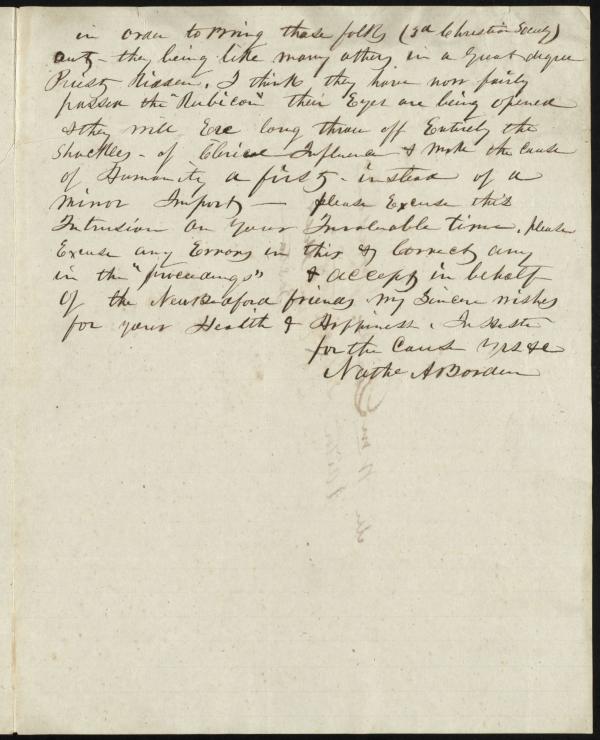 in order to bring those folks (3d Christian Society)
out – they being like many others in a Great degree
Priest Ridden. I think they have now fairly
passed the "Rubicon" their Eyes are being opened
& they will Ere long throw off Entirely the
Shackles – of Clerical Influence & make the cause
of Humanity a first – instead of a
minor Import — please Excuse this
Intrusion on your Invaluable time. please
Excuse any Errors in this & Correct any
in the "proceedings" & accept in behalf
Of the New Bedford friends my Sincere wishes
for your Health & Happiness. In Haste
for the Cause Yrs &c
Nathl A Borden